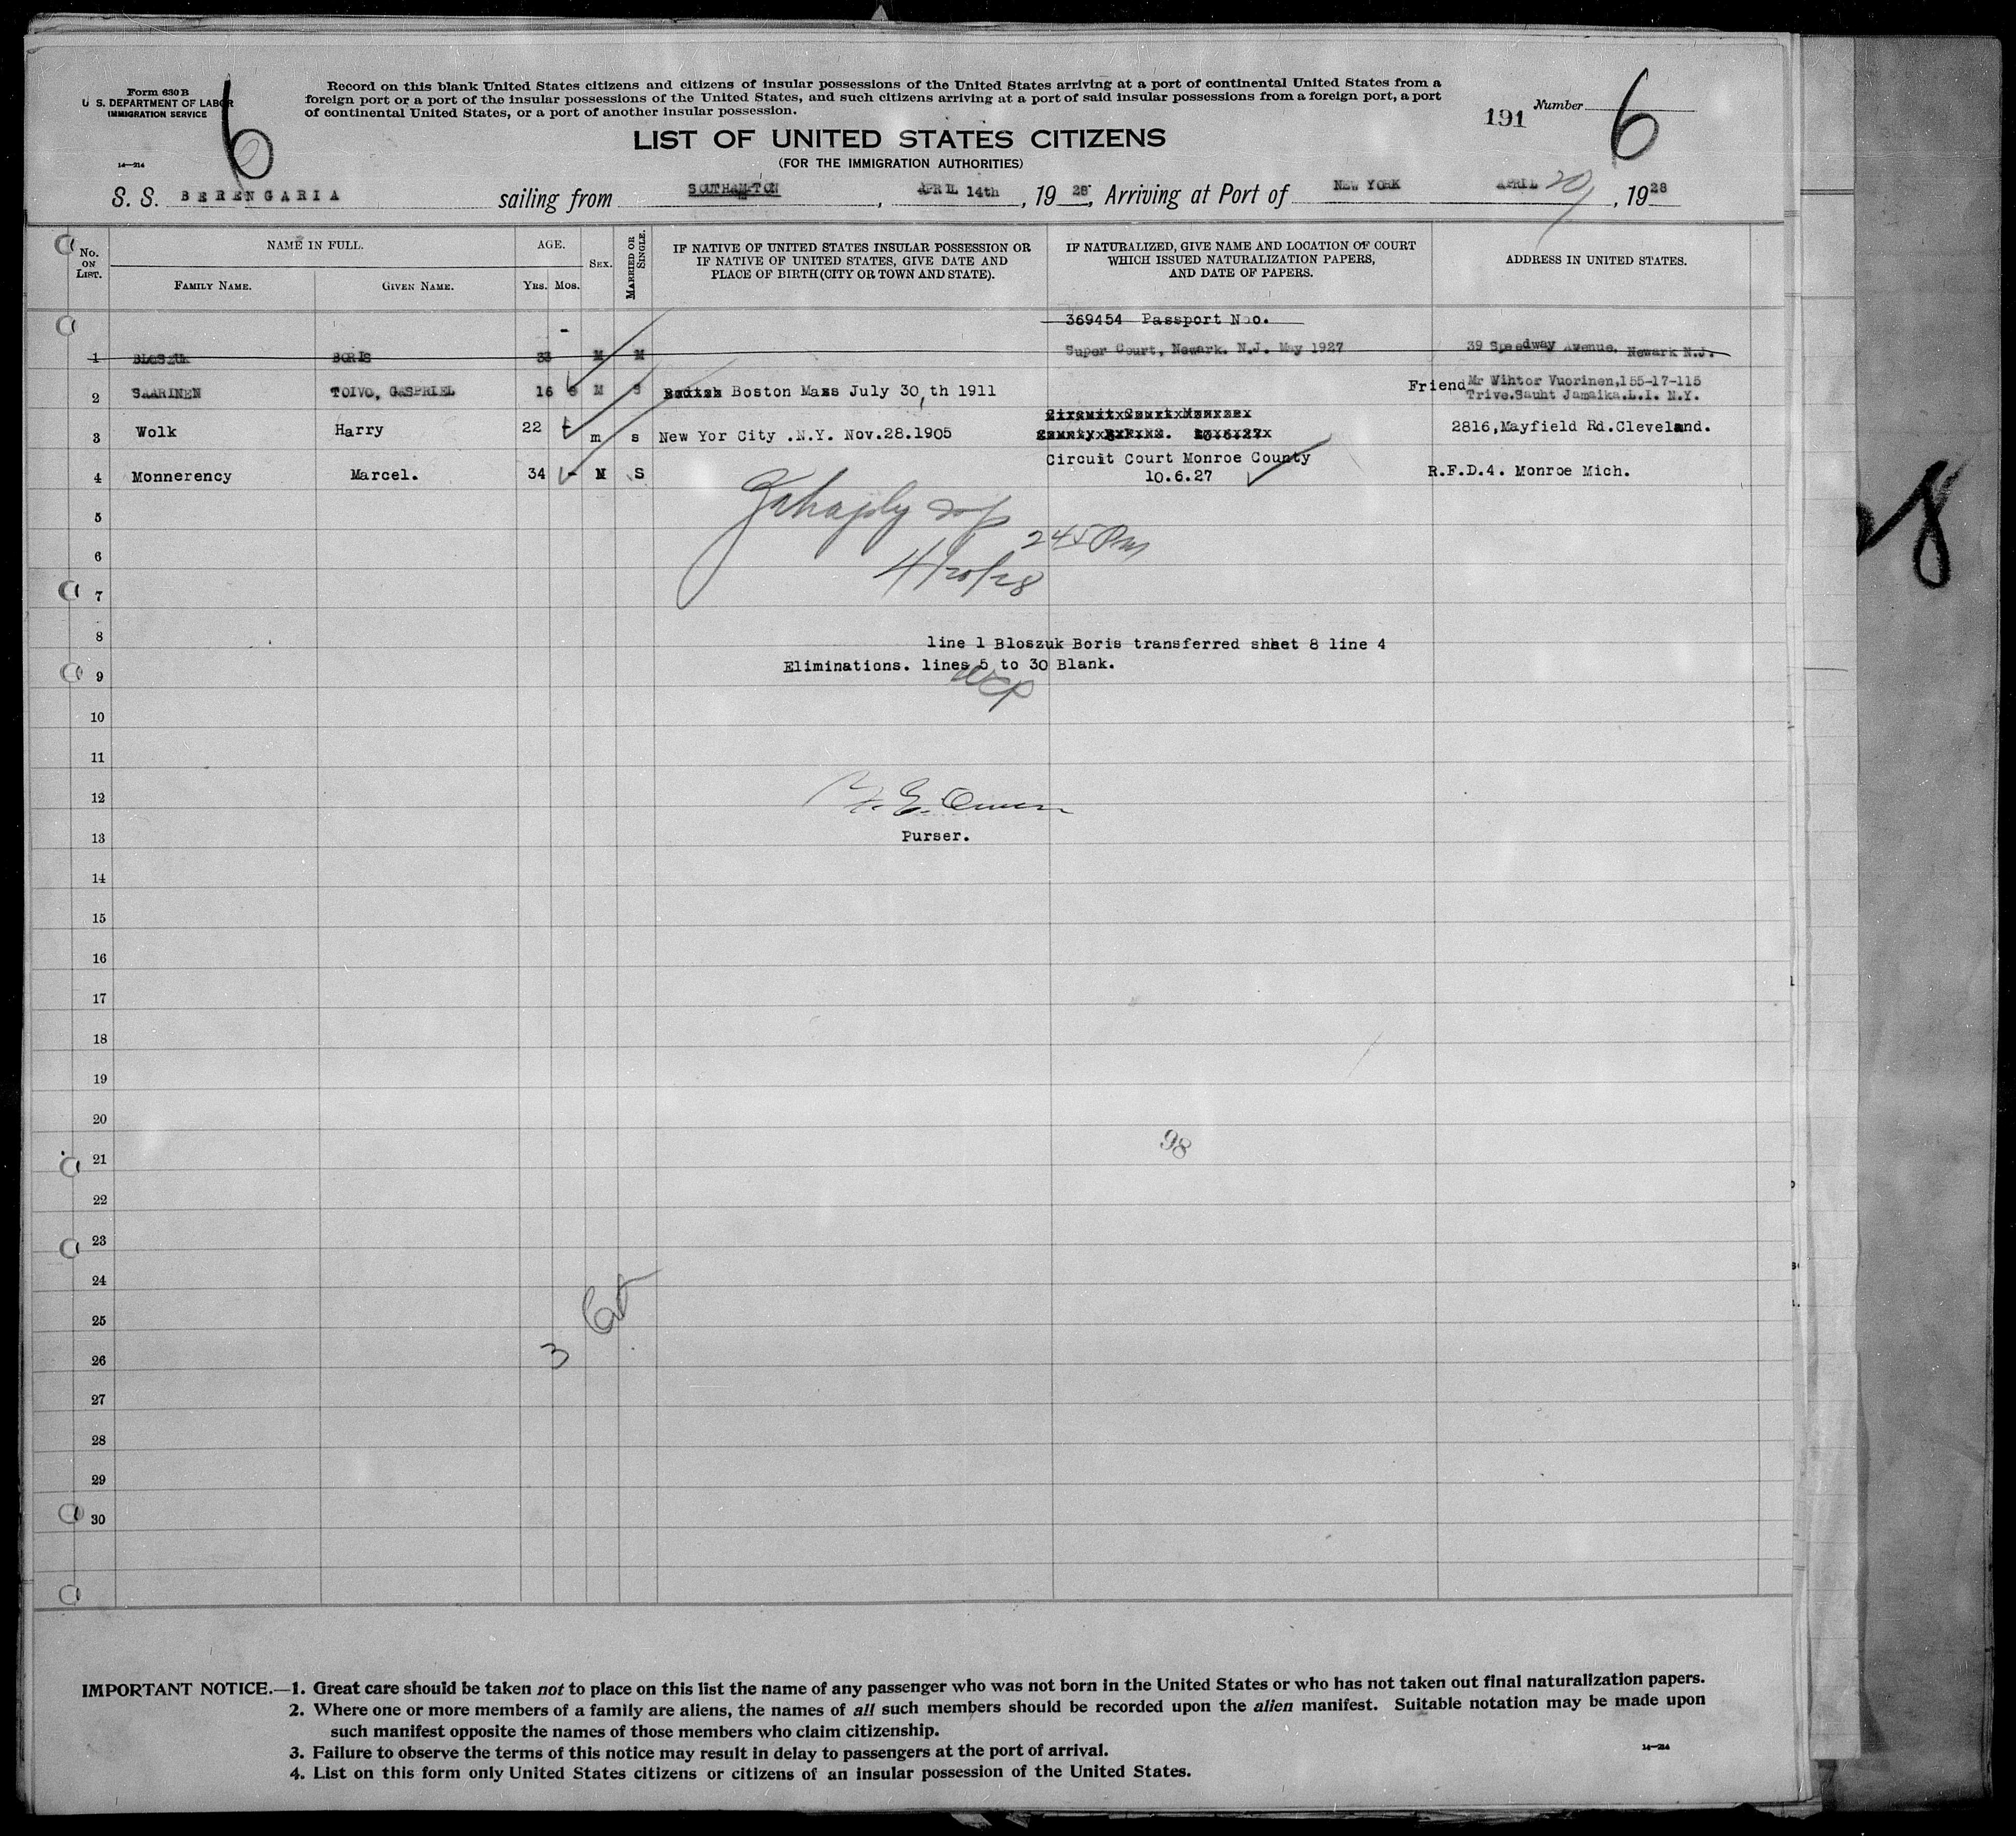 Form 630 B
U. S. DEPARTMENT OF LABOR
IMMIGRATION SERVICE
14—214
6
Record on this blank United States citizens and citizens of insular possessions of the United States arriving at a port of continental United States from a
foreign port or a port of the insular possessions of the United States, and such citizens arriving at a port of said insular possessions from a foreign port, a port
of continental United States, or a port of another insular possession.
191 Number 6
LIST OF UNITED STATES CITIZENS
(FOR THE IMMIGRATION AUTHORITIES)
S. S. BERENGARIA sailing from SOUTHAMPTON, APRIL 14th, 19 28, Arriving at Port of NEW YORK APRIL 20, 19 28
No. ON LIST. NAME IN FULL. AGE. SEX. MARRIED OR SINGLE. IF NATIVE OF UNITED STATES INSULAR POSSESSION OR IF NATIVE OF UNITED STATES, GIVE DATE AND PLACE OF BIRTH (CITY OR TOWN AND STATE). IF NATURALIZED, GIVE NAME AND LOCATION OF COURT WHICH ISSUED NATURALIZATION PAPERS, AND DATE OF PAPERS. ADDRESS IN UNITED STATES.
FAMILY NAME. GIVEN NAME. YRS. MOS.
369454 Passport Noo.
1 BLOSZUK BORIS 33 M M Super Court, Newark. N.J. May 1927 39 Speedway Avenue. Newark N.J.
2 SAARINEN TOIVO, GASPRIEL 16 8 M S Boston Mass July 30,th 1911 Friend Mr Wihtor Vuorinen,155-17-115
Trive.Sauht Jamaika.L.I. N.Y.
3 Wolk Harry 22 m s New Yor City .N.Y. Nov.28.1905 2816,Mayfield Rd.Cleveland.
4 Monnerency Marcel. 34 - M S Circuit Court Monroe County
10.6.27 R.F.D.4. Monroe Mich.
5
245 Pm
6
4/20/28
7
8 line 1 Bloszuk Boris transferred sheet 8 line 4
9 Eliminations. lines 5 to 30 Blank.
10
11
12
Owen
13 Purser.
14
15
16
17
18
19
20
98
21
22
23
24
25
3
26
27
28
29
30
28
IMPORTANT NOTICE.—1. Great care should be taken not to place on this list the name of any passenger who was not born in the United States or who has not taken out final naturalization papers.
2. Where one or more members of a family are aliens, the names of all such members should be recorded upon the alien manifest. Suitable notation may be made upon
such manifest opposite the names of those members who claim citizenship.
3. Failure to observe the terms of this notice may result in delay to passengers at the port of arrival.
14—214
4. List on this form only United States citizens or citizens of an insular possession of the United States.